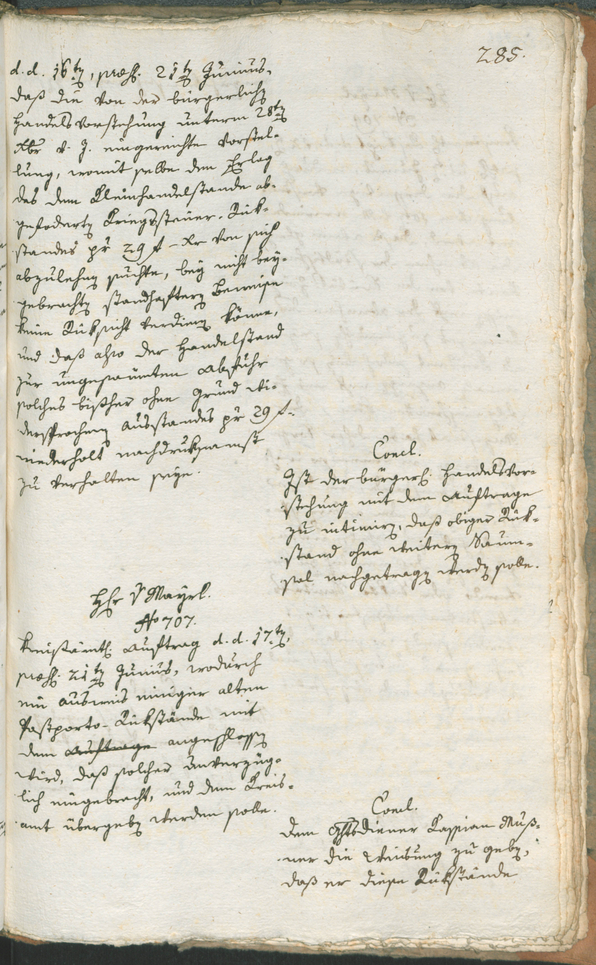 285.
d. d. 16ten, præs. 21ten Junius,
daß die von der bürgerlichen
Handelsvorstehung unterm 28ten
Xbr v. J. eingereichte Vorstel-
lung, womit selbe den Erlag
des dem Kleinhandelstande ab-
gefoderten Kriegssteuer-Rük-
standes pr 29 f – Xr von sich
abzulehnen suchte, bey nicht bey-
gebrachten standhaften Beweisen
keine Rüksicht verdienen könne,
und daß also der Handelstand
zur ungesäumten Abfuhr
solches bißher ohne Grund wi-
dersprochenen Ausstandes pr 29 f.
wiederholt nachdruksamst
zu verhalten seye.
Concl.
Ist der bürgerl. Handelsvor-
stehung mit dem Auftrage
zu intimiren, daß obiger Rük-
stand ohne weiterm Säum-
sal nachgetragen werden solle.
Hr v Mayrl.
No 707.
Kreisämtl. Auftrag d. d. 17ten,
præs. 21ten Junius, wodurch
ein Ausweis einiger alten
Postporto-Rükstände mit
dem Auftrage angeschlossen
wird, daß solcher unverzüg-
lich eingebracht, und dem Kreis-
amt übergeben werden solle.
Concl.
Dem Ghtsdiener Kassian Muß-
ner die Weisung zu geben,
daß er diese Rükstände